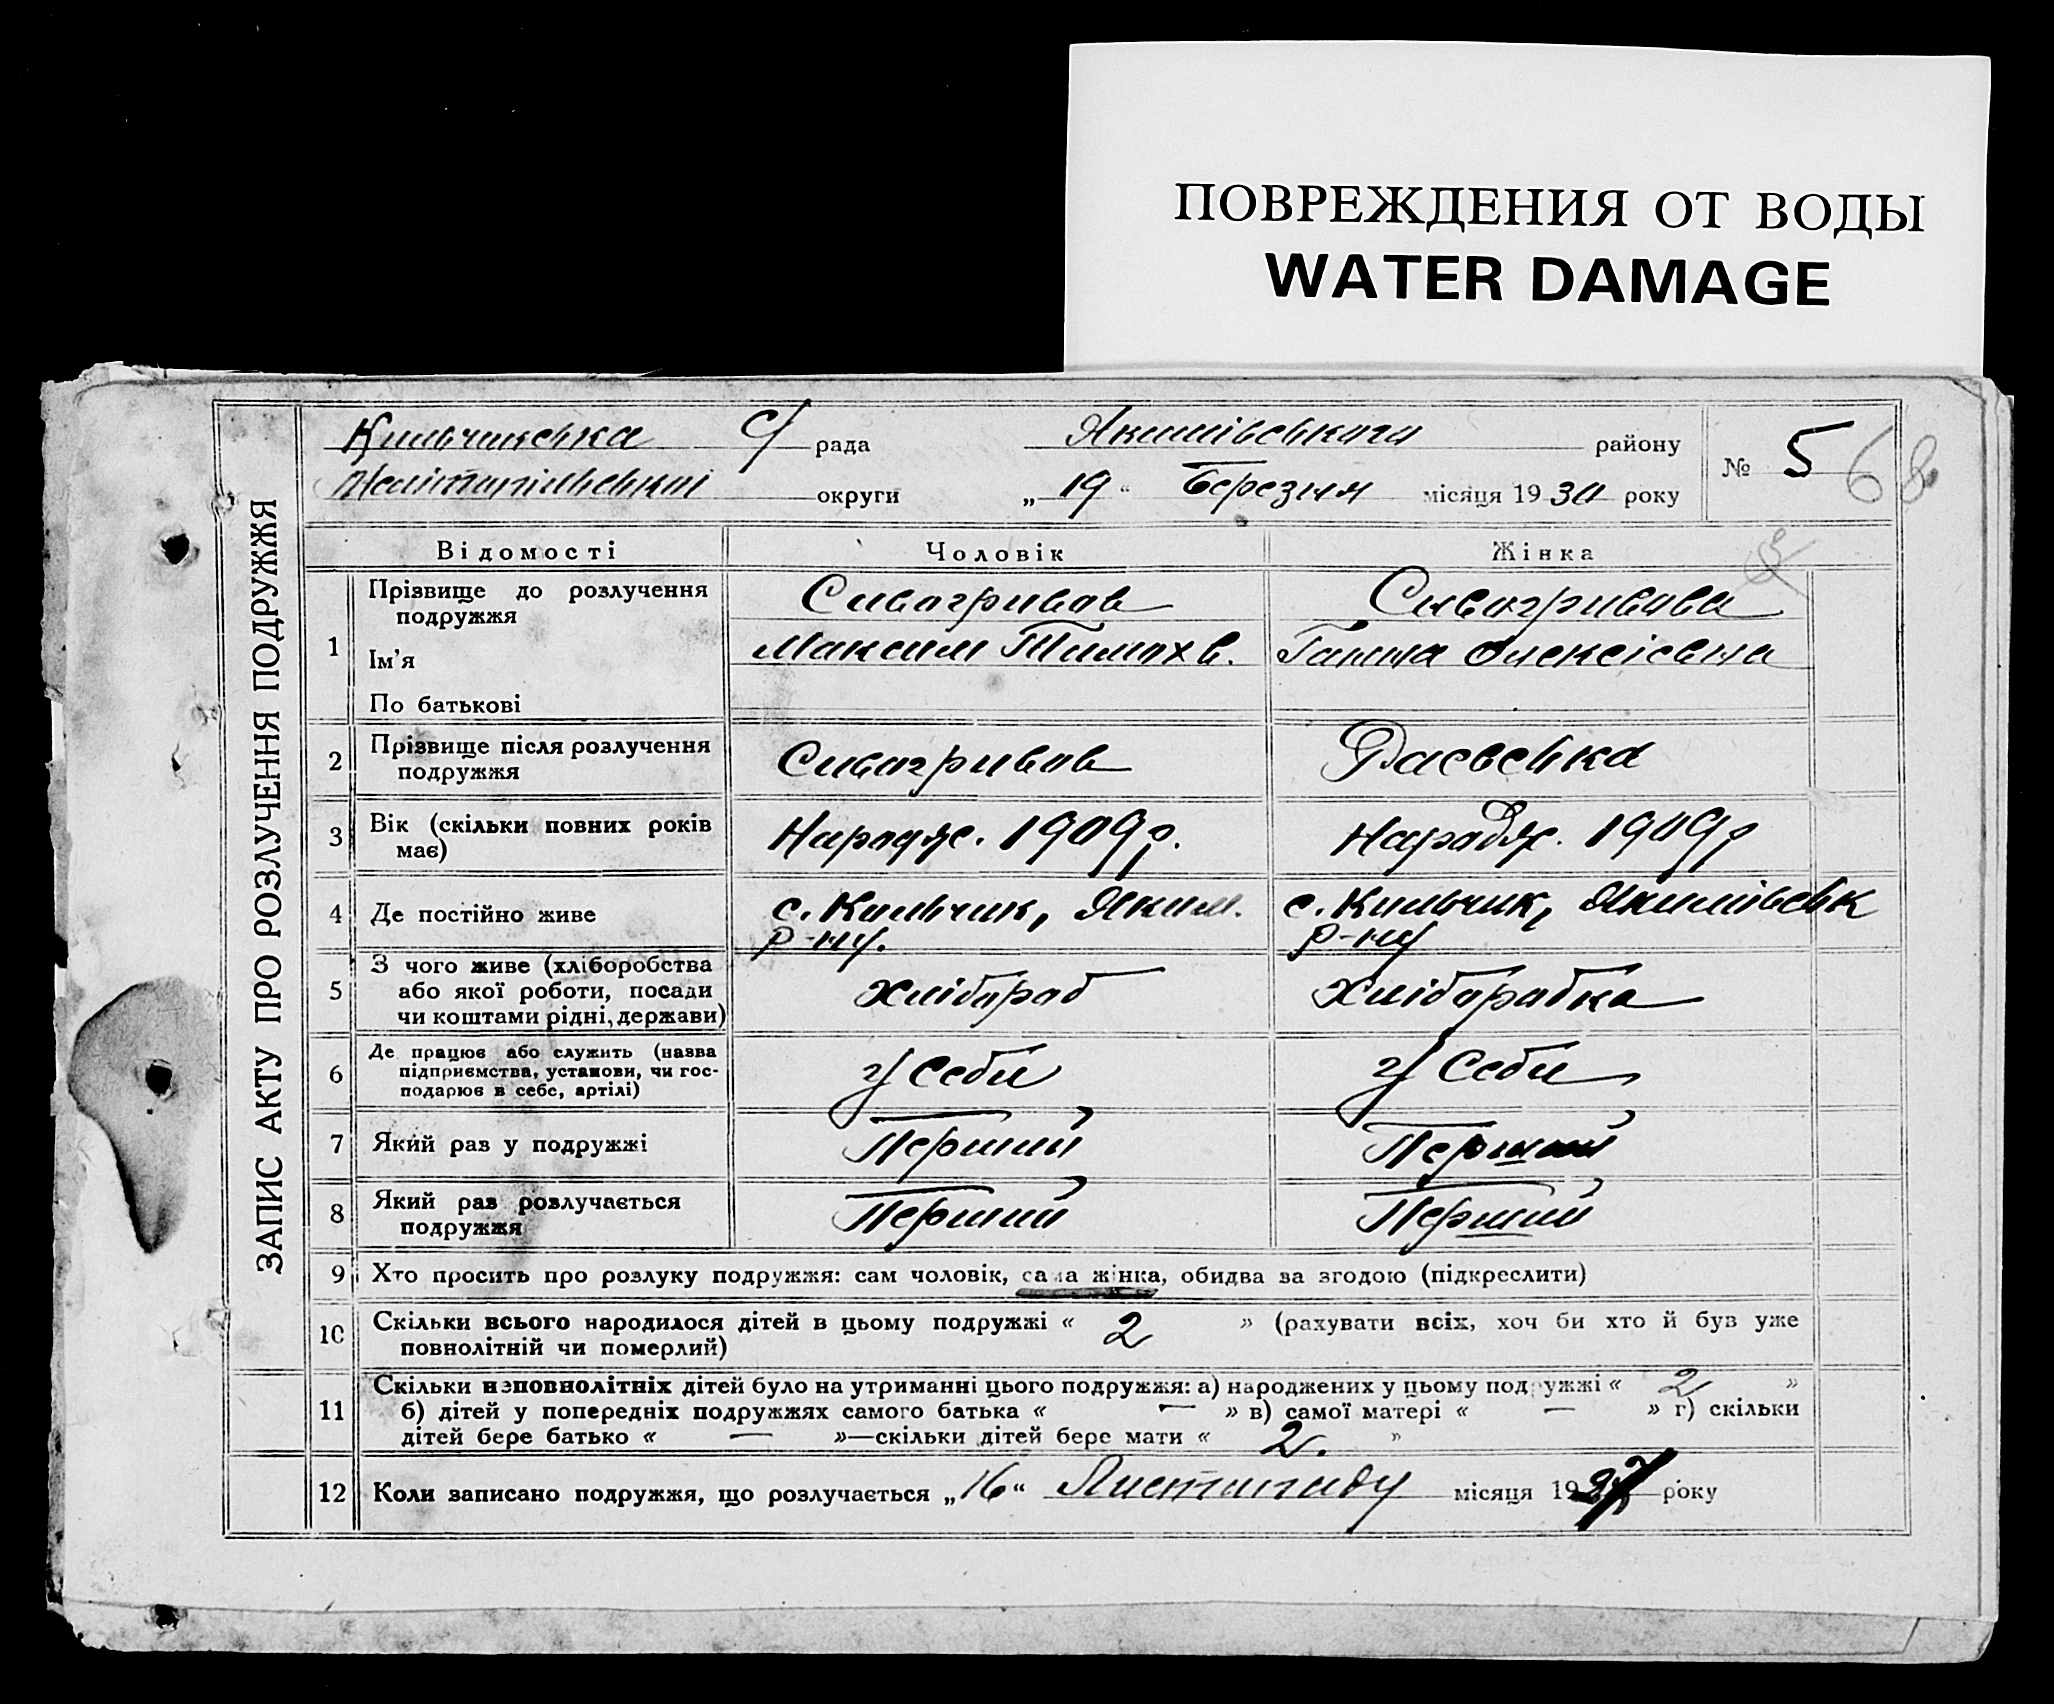 ПОВРЕЖДЕНИЯ ОТ ВОДЫ
WATER DAMAGE
ЗАПИС АКТУ ПРО РОЗЛУЧЕННЯ ПОДРУЖЖЯ
с/ рада Якимівського району
округи „19“ Березня місяця 1930 року
№ 5 68
Відомості Чоловік Жінка
1 Прізвище до розлучення Сивогривов Сивогривова
подружжя
Ім'я Максим Тимох в. Ганна Олексієвна
По батькові
2 Прізвище після розлучення Сивогривов
подружжя
3 Вік (скільки повних років Народж. 1909 р. Народж. 1909 р
має)
4 Де постійно живе с. Кильчик, Яким. с. Кильчик, Якимівськ
р-ну. р-ну
5 З чого живе (хліборобства Хлібороб Хлібо­робка
або якої роботи, посади
чи коштами рідні, держави)
6 Де працює або служить (назва у себи у себи
підприємства, установи, чи гос-
подарює в себе, артілі)
7 Який раз у подружжі Перший Перший
8 Який раз розлучається Перший Перший
подружжя
9 Хто просить про розлуку подружжя: сам чоловік, сама жінка, обидва за згодою (підкреслити)
10 Скільки всього народилося дітей в цьому подружжі « 2 » (рахувати всіх, хоч би хто й був уже
повнолітній чи померлий)
11 Скільки неповнолітніх дітей було на утриманні цього подружжя: а) народжених у цьому подружжі « 2 »
б) дітей у попередніх подружжях самого батька « — » в) самої матері « — » г) скільки
дітей бере батько « — »—скільки дітей бере мати « 2. »
12 Коли записано подружжя, що розлучається „16“ Листопаду місяця 1927 року